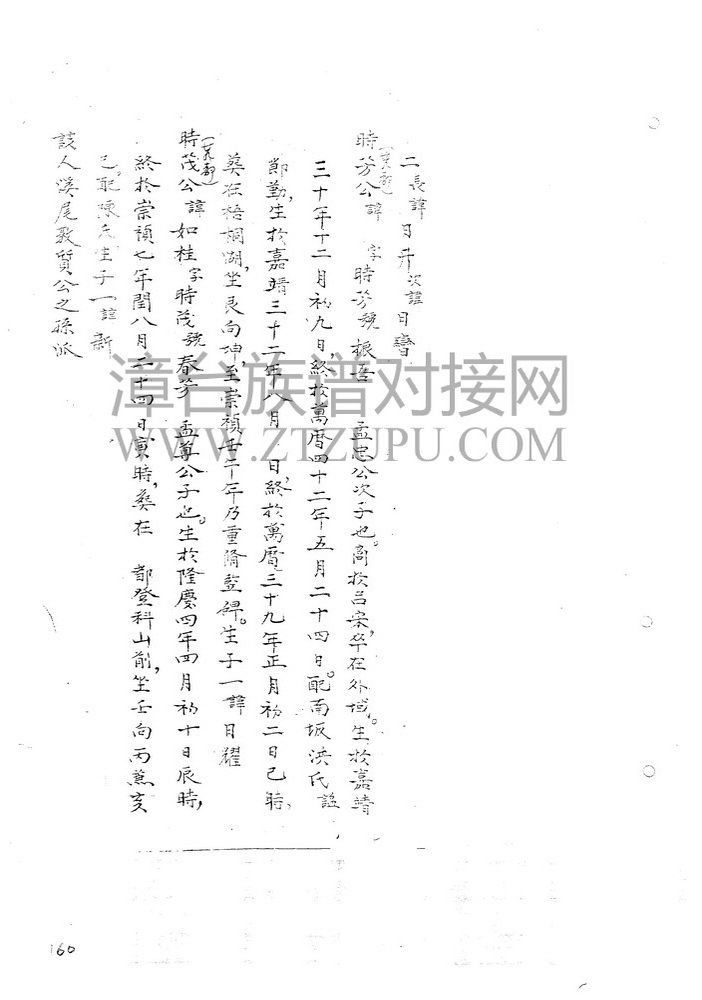 二長諱日升次諱日
時芳公諱 字時芳號振吾 孟忠公次子也。商於呂宋,卒在外域。生於嘉靖
三十年十二月初九日,終於萬曆四十二年五月二十四日。配南坂洪氏諡
勤,生於嘉靖三十二年八月 日,終於萬曆三十九年正月初二日巳時,
葬在梧桐湖,坐艮向坤,至崇禎壬午年乃重脩。生子一諱日耀
時茂公諱如桂字時茂號春芳 孟尊公子也。生於隆慶四年四月初十日辰時,
終於崇禎七年閏八月二十四日寅時,葬在 都登科山前,坐壬向丙兼亥
巳。配陳氏生子一諱新
該人溪尾敦質公之孫派
漳台族谱对接网
WWW.ZTZUPU.COM
160